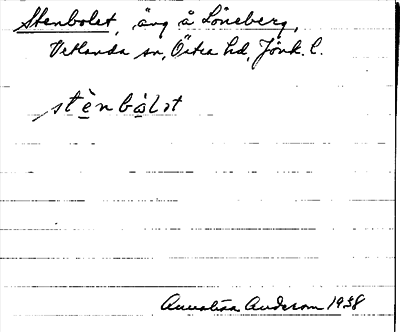 Stenbolet, äng å Löneberg,
Vetlanda sn, Östra hd, Jönk. l.
stènbɷlət
Annalisa Anderson 1938